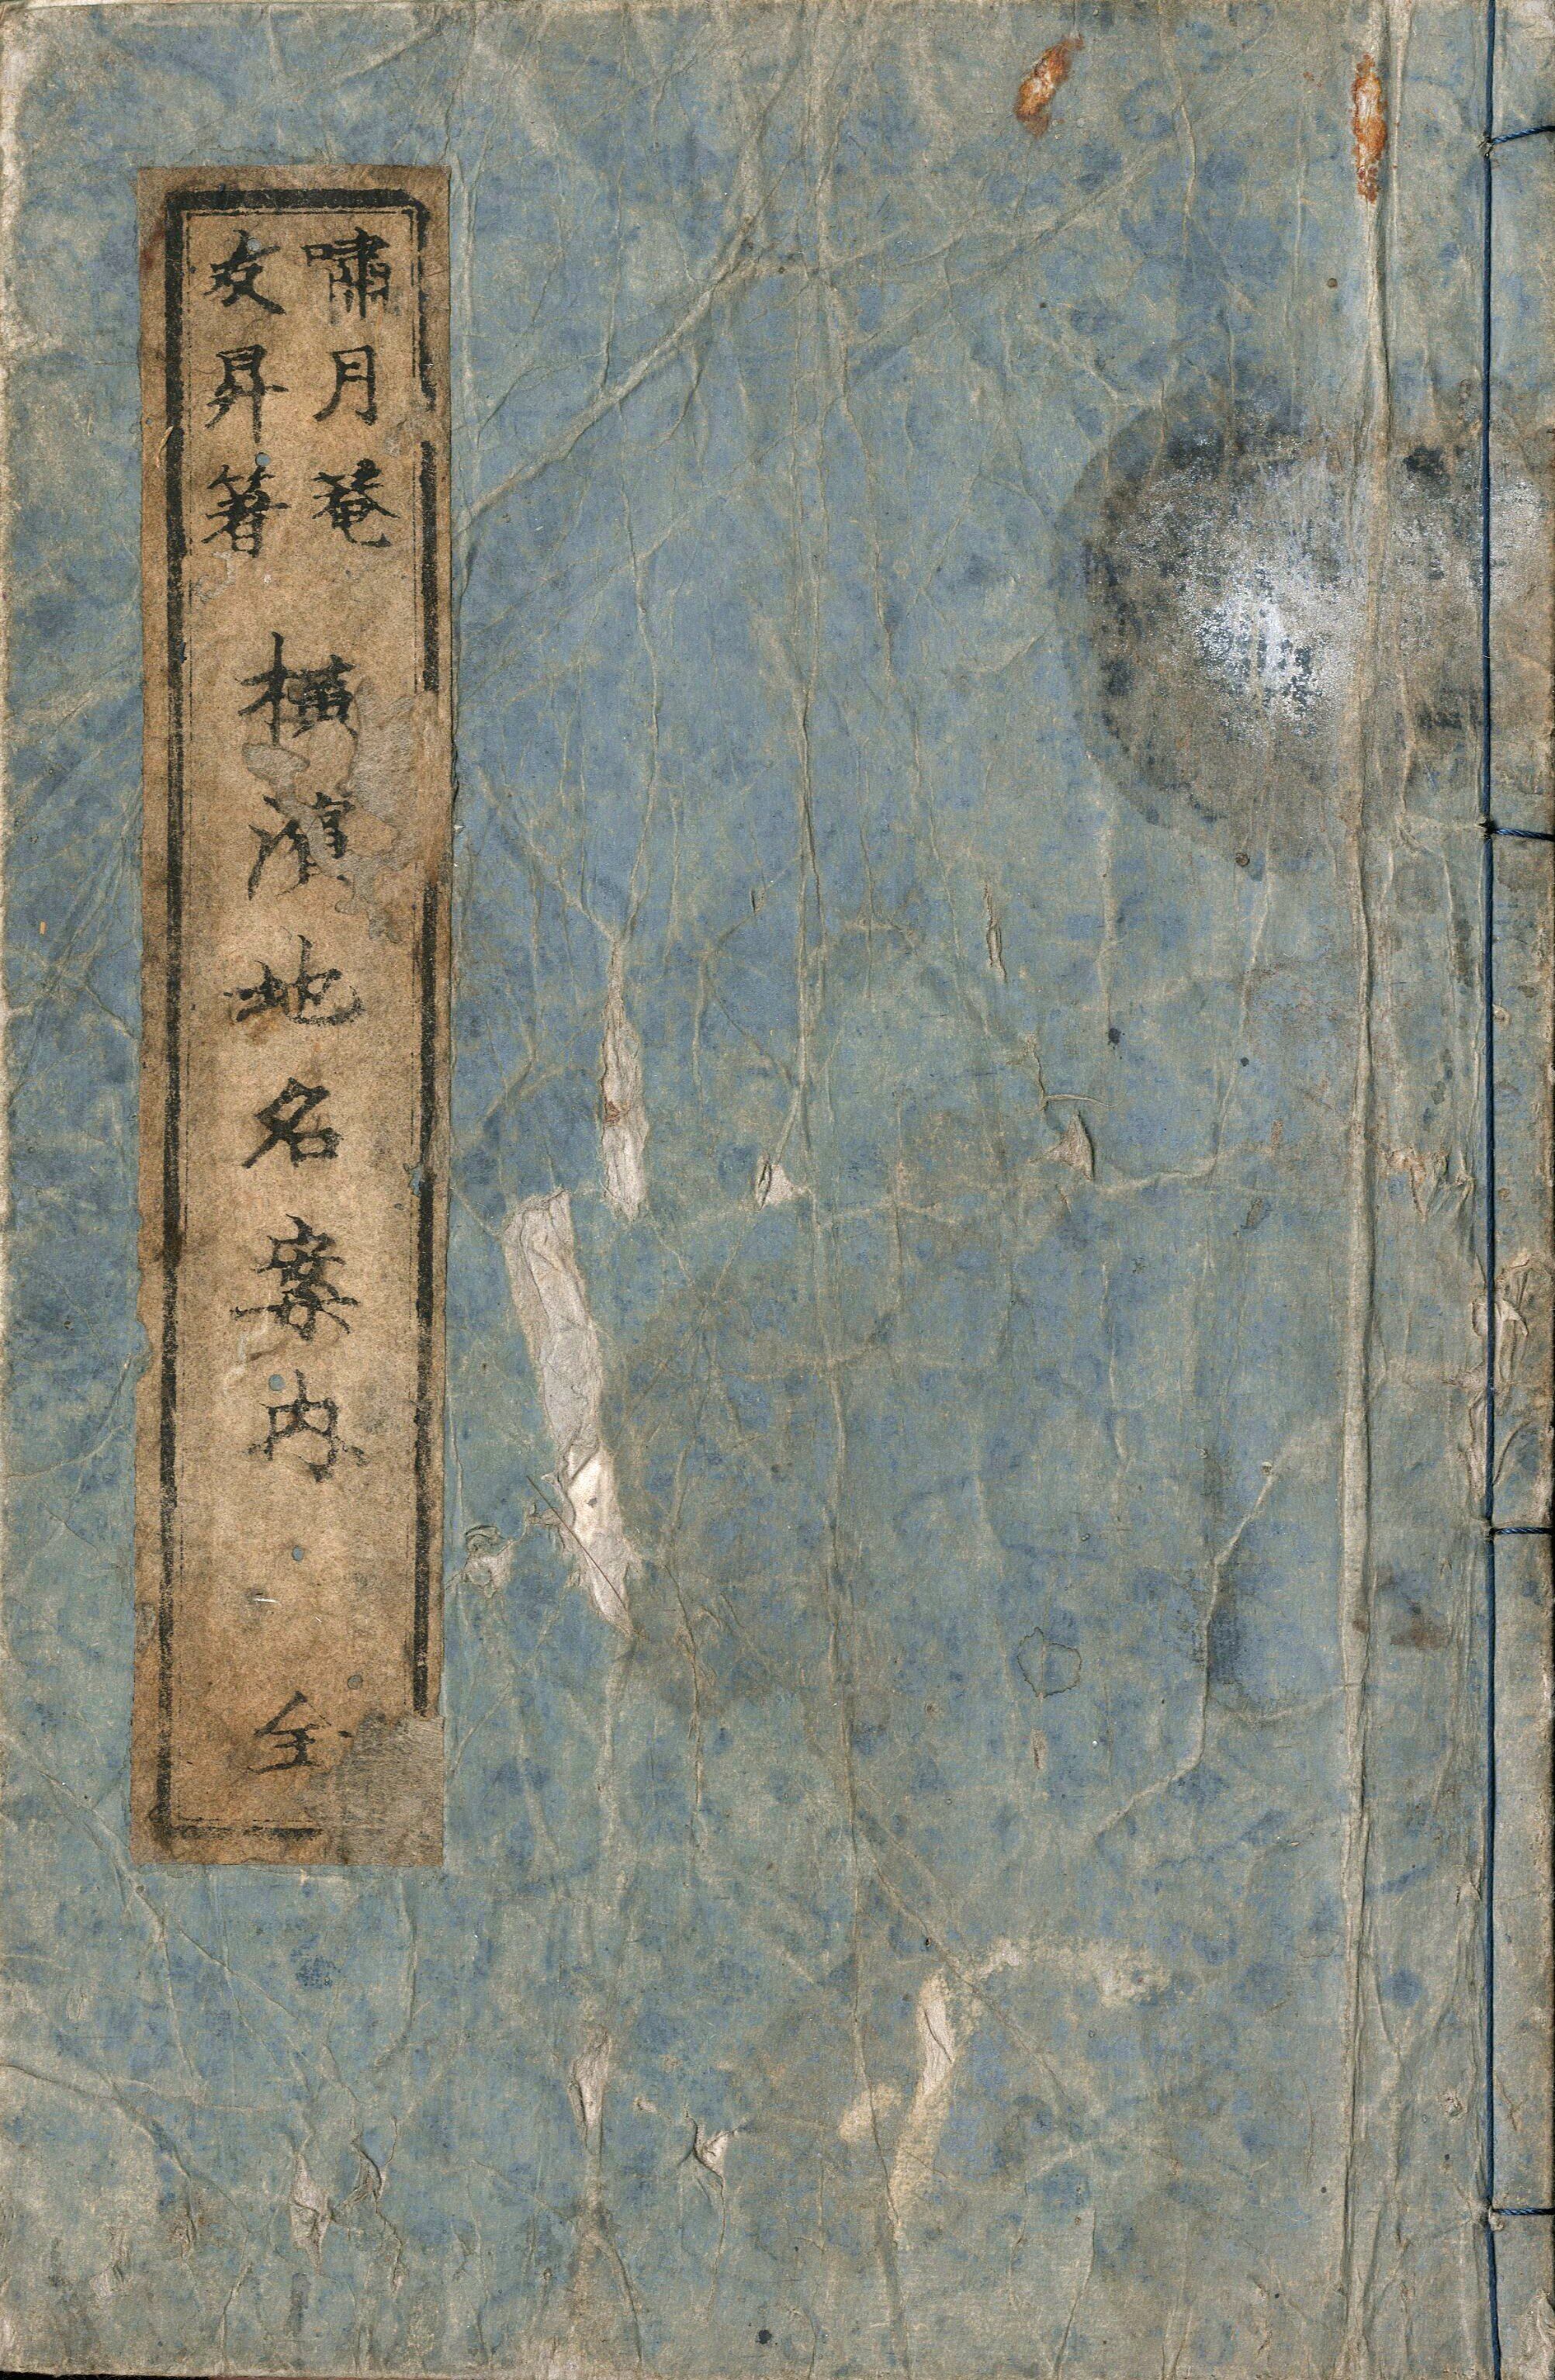 嘯月菴
文昇著
横濱地名案内
全